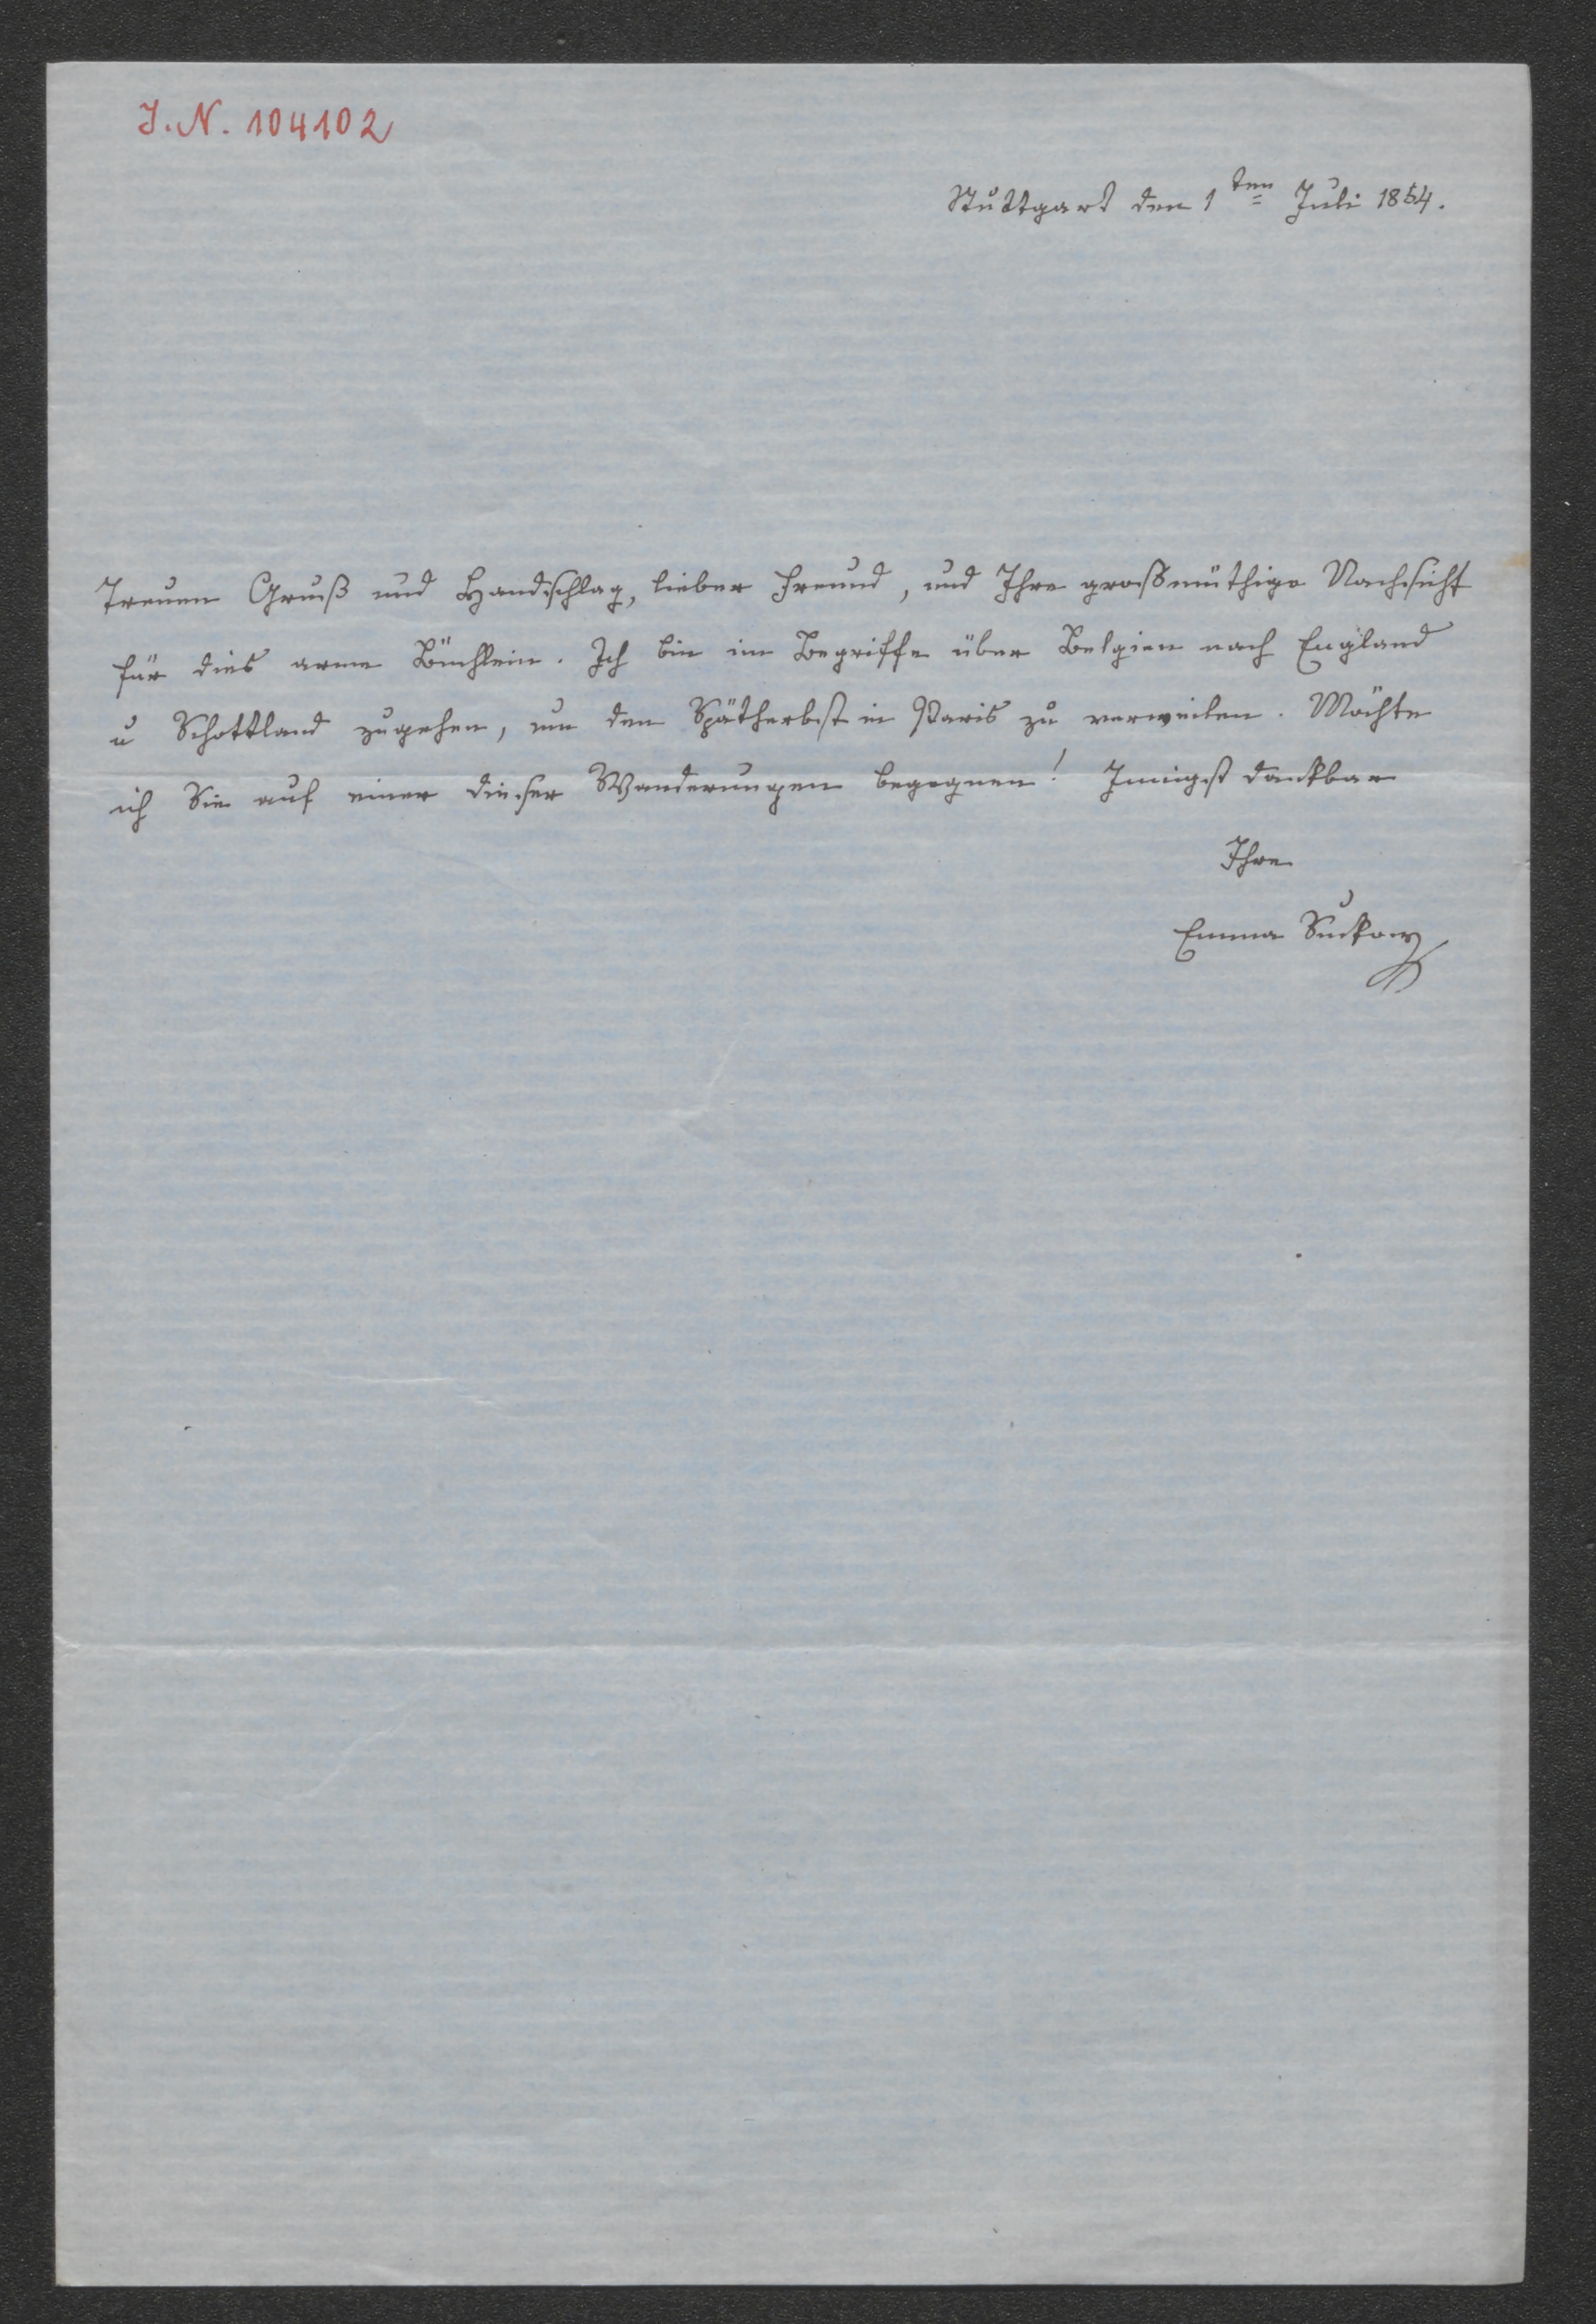 J. N. 104102
Stuttgart den 1ten Juli 1854.
Treuen Gruß und Handschlag, lieber Freund, und Ihre großmüthige Nachsicht
für dies arme Büchlein. Ich bin im Begriffe über Belgien nach England
u Schottland zugehen, um den Spätherbst in Paris zu verweilen. Möchte
ich Sie auf einer dieser Wanderungen begegnen! Innigst dankbar
Ihre
Emma Suckow